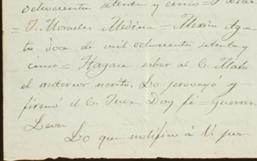 ochocientos setenta y cinco =
= J. Morales Medina = Mexico Ago
to doce de mil ochocientos setenta y
cinco = Hagase saber al C.
el anterior escrito. Lo proveyó y
firmó el C. Juez Doy fe = Guerrero
Leon
Lo que notifico á U. por